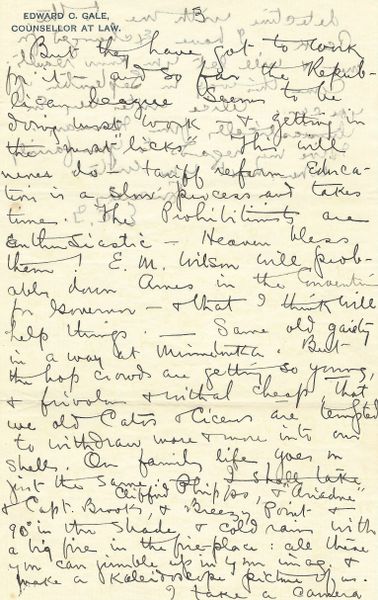 EDWARD C. GALE,
COUNSELLOR AT LAW.
3
But they have got to work
for it — and so far the Repub-
lican League seems to be
doing most work — & getting in
the "most licks". This will
never do — tariff reform Educa-
tion is a slow process and takes
time. The Prohibitionists are
Enthusiastic — Heaven bless
them! E. M. Wilson will prob-
ably down Ames in the Convention
for Governor — & that I think will
help things — Same old gaiety
in a way at Minnetonka. But
the hop crowds are getting so young,
& frivolous & withal cheap, that
we old Catos & Ciceros are tempted
to withdraw more & more into our
shells. Our family life goes on
just the same. I shall take
Clifford Phipps, & "Ariadne"
& Capt. Brooks, & Breezy Point &
90° in the shade & cold rains with
a big fire in the fire-place: all these
you can jumble up in your imag. &
make a Kaleidoscope picture of us.
I take a camera